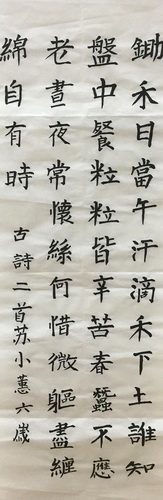 鋤禾日當午汗滴禾下土誰知
盤中餐粒粒皆辛苦春蠶不應
老晝夜常懷絲何惜微軀盡纏
綿自有時
古詩二首苏小蕙六歲